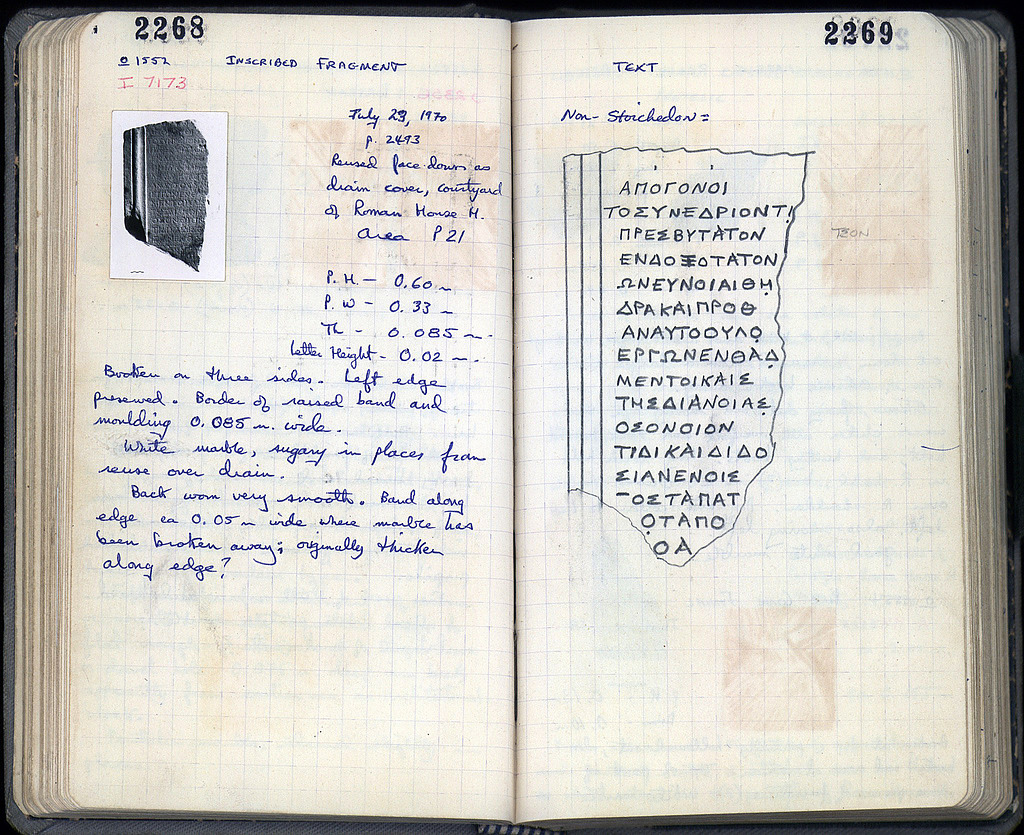 2268
Ω 1552 INSCRIBED FRAGMENT
I 7173
July 29, 1970
p. 2493
Reused face down as
drain cover, courtyard
of Roman House H.
Area P 21
P.H. - 0.60 m
P.W - 0.33 m
Th - 0.085 m.
Letter Height - 0.02 m.
Broken on three sides. Left edge
preserved. Border of raised band and
moulding 0.085 m. wide.
White marble, sugary in places from
reuse over drain.
Back worn very smooth. Band along
edge ca 0.05 m wide where marble has
been broken away; originally thicker
along edge?
2269
TEXT
Non-Stoichedon:
ΑΠΟΓΟΝΟΙ
ΤΟΣΥΝΕΔΡΙΟΝΤΙ
ΠΡΕΣΒΥΤΑΤΟΝ
ΤΣΟΝ
ΕΝΔΟΞΟΤΑΤΟΝ
ΩΝΕΥΝΟΙΑΙΘΗ
ΔΡΑΚΑΙΠΡΟΘ
ΑΝΑΥΤΟΟΥΛΟ
ΕΡΓΩΝΕΝΘΑΔ
ΜΕΝΤΟΙΚΑΙΣ
ΤΗΣΔΙΑΝΟΙΑΣ
ΟΣΟΝΟΙΟΝ
ΤΙΔΙΚΑΙΔΙΔΟ
ΣΙΑΝΕΝΟΙΣ
ΤΟΣΤΑΠΑΤ
ΟΤΑΠΟ
ΟΑ